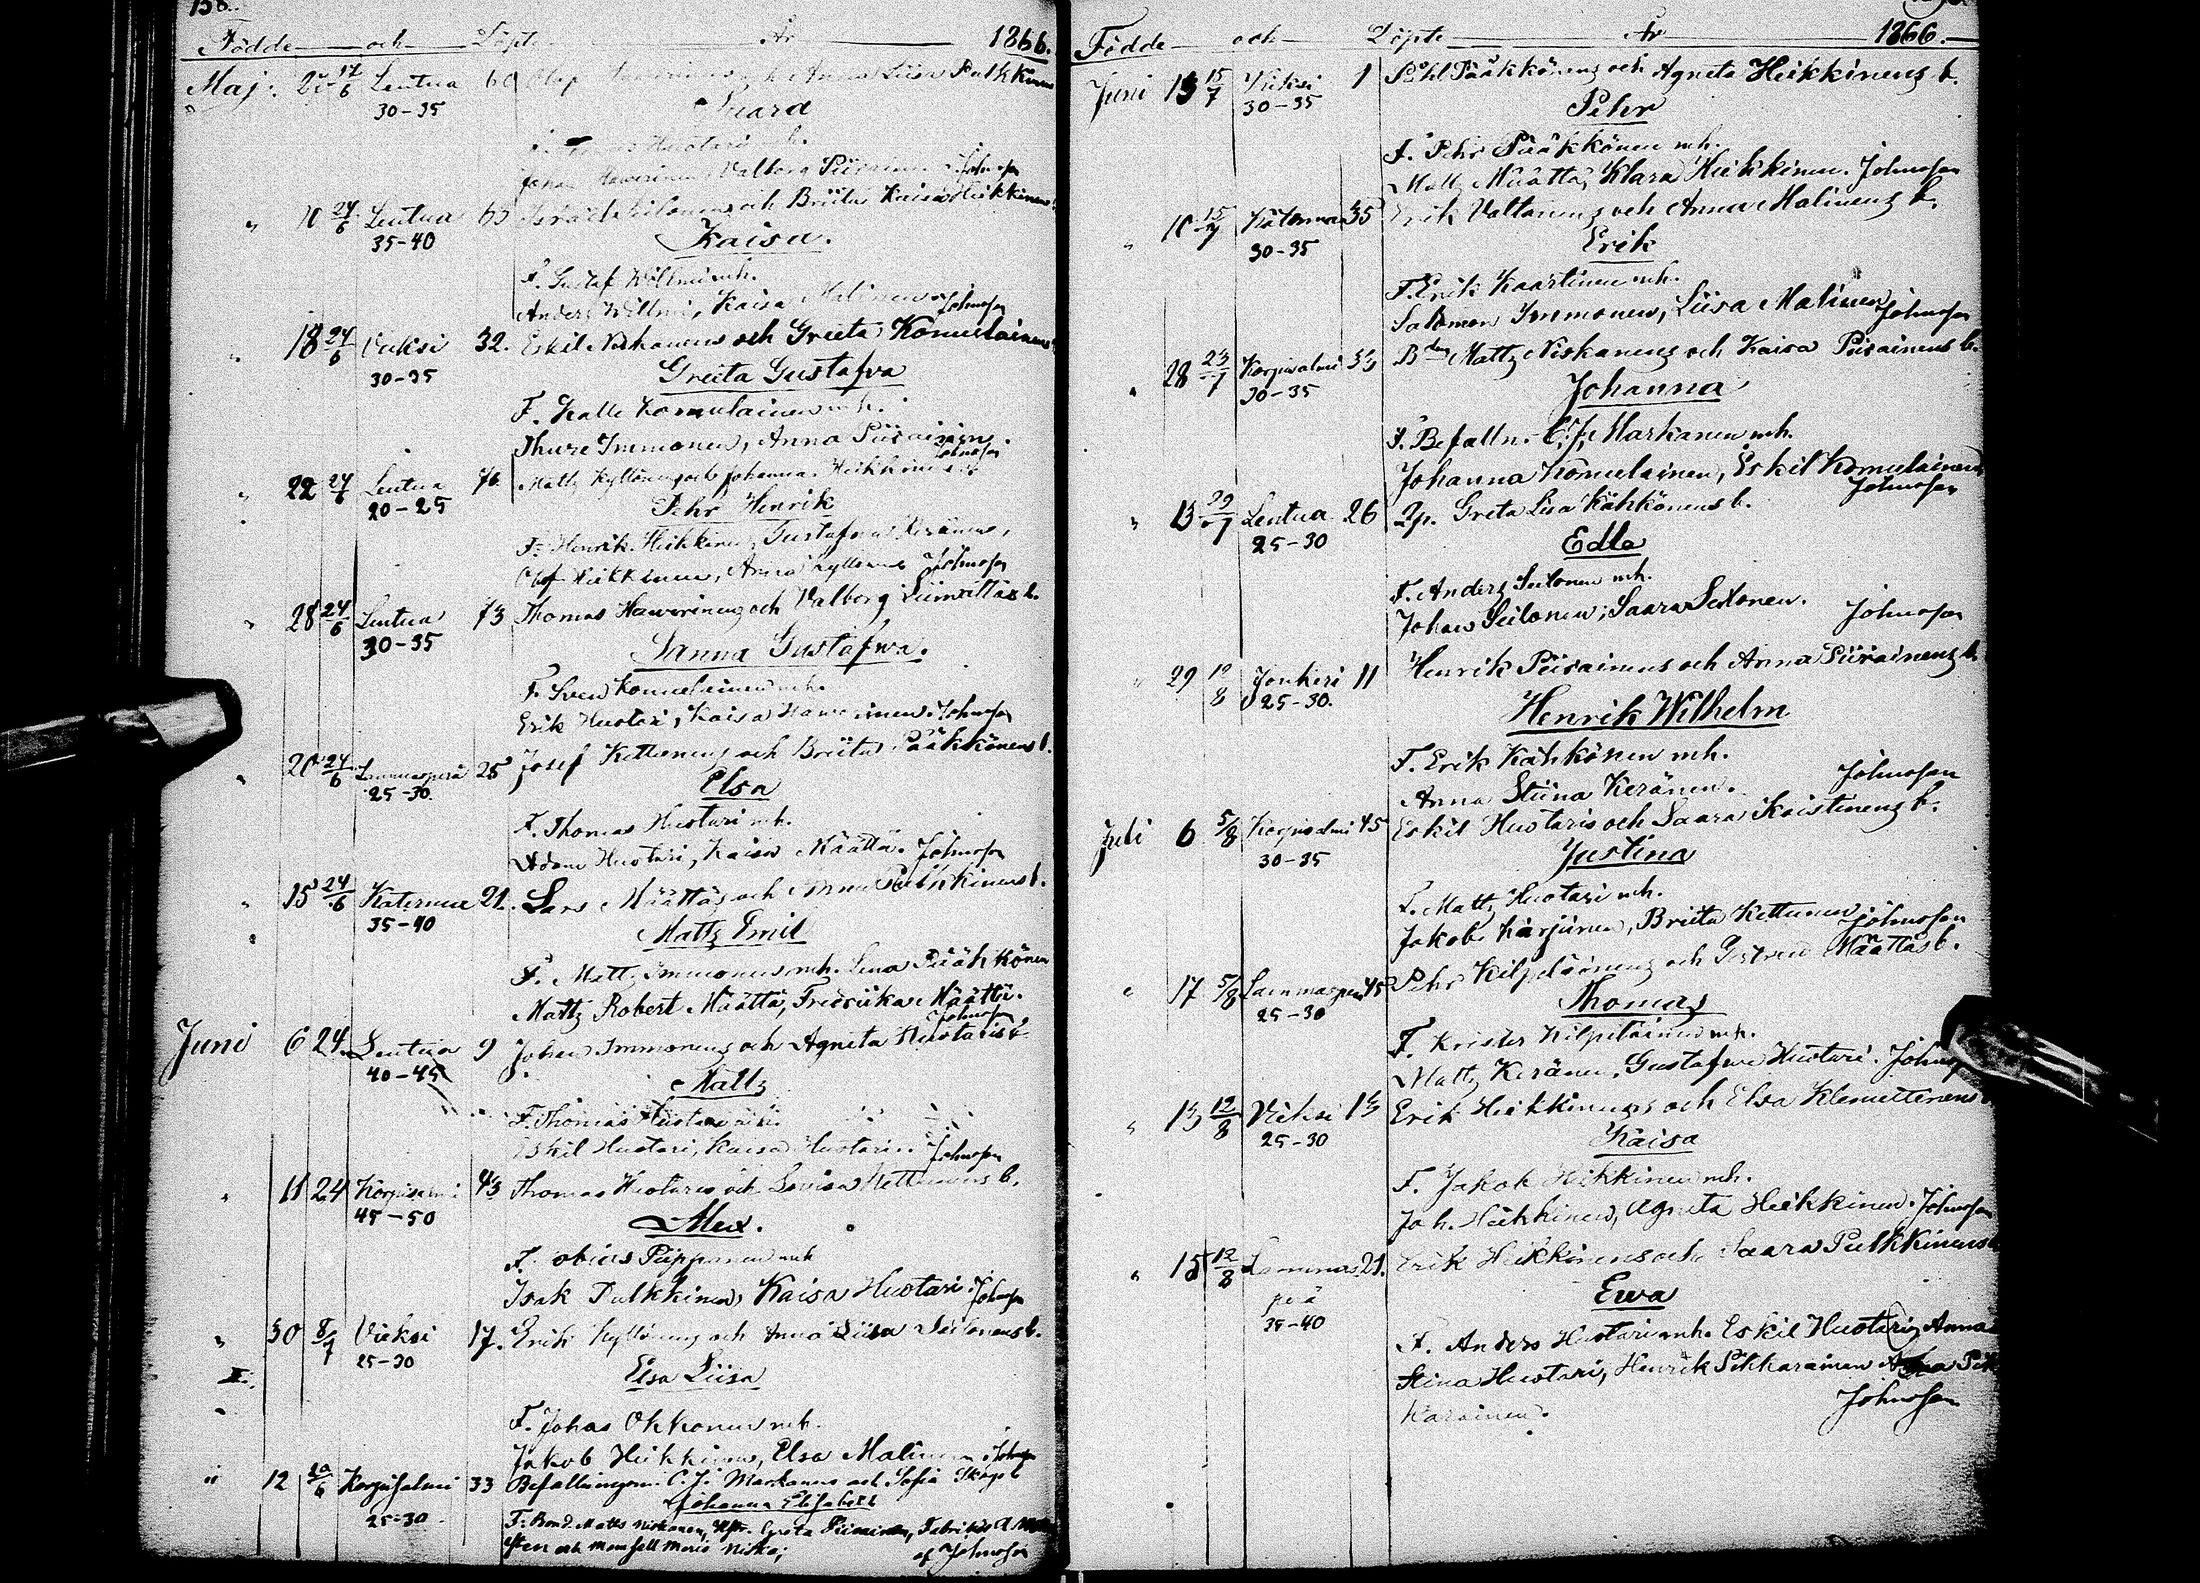 158.
Födde och Döpte År 1866.
Maj. 17/6 Lentua 60 Olof och Anna Liisa Pulkkinens
30-35
Huotari mh.
Johan Hawerinen, Valborg Piirainen. Johnsson
" 10 24/6 Lentua och Briita Kaisa Heikkinens
35-40 Kaisa.
F. Gustaf Willmi mh.
Anders Willmi, Kaisa Malinen. Johnsson
" 18 24/6 Vieksi 32. Eskil Niskanens och Greeta Komulainens
30-35 Greeta Gustafva
F. Kalle Komulainen mh.
Thure Immonen, Anna Piirainen.
Johnsson
" 22 24/6 Lentua 76 Matts Kyllönens och Johanna Heikkinens
20-25 Pehr Henrik
F. Henrik Heikkinen, Gustafva Keränen,
Olof Heikkinen, Anna Kyllönen Johnsson
" 28 24/6 Lentua 73 Thomas Hawerinens och Valborg b.
30-35 Sanna Gustafva.
F. Sven Komulainen mh.
Erik Huotari, Kaisa Hawerinen. Johnsson
" 20 24/6 Lammasperä 25 Josef Kettunens och Briita Pääkkönens b.
25-30. Elsa
F. Thomas Huotari mh.
Adam Huotari, Kaisa Määttä. Johnsson
" 15 24/6 Katerma 21. Lars Määttäs och Anna Pulkkinens b.
35-40 Matts Emil
F. Matts Immonen mh. Lena Pääkkönen
Matts Robert Määttä, Fredriika Määttä.
Johnsson
Juni 6 24. Lentua 9 Johan Immonens och Agneta Huotaris b.
40-45 Matts
F. Thomas Huotari mh.
Eskil Huotari, Kaisa Huotari. Johnsson
" 11 24 Korpisalmi 43 Thomas Huotaris och Lovisa Kettunens b.
45-50 Alex.
F. Piipponen mh
Isak Pulkkinen, Kaisa Huotari. Johnsson
" 30 8/7 Vieksi 17. Erik Kyllönens och Anna Liisa Seilonens b.
25-30 Elsa Liisa
F. Johas Okkonen mh.
Jakob Heikkinen, Elsa Malinen Johnsson
" 12 Korpisalmi 33 Befallningsm. C. J. Markanens och Sofia b
25-30 Johanna Elisabeth
F. Bond. Matts Niskanen, Greta Piirainen,
och mamsell Maria Niska;
af Johnsson
Födde och Döpte År 1866.
Juni 13 15/7 Vieksi 1 Påhl Pääkkönens och Agneta Heikkinens b.
30-35 Pehr
F. Pehr Pääkkönen mh.
Matts Määttä, Klara Heikkinen. Johnsson
" 10 15/7 Katerma 35 Erik Valtanens och Anna Malinens b.
30-35 Erik
F. Erik Kaartinen mh.
Salomon Immonen, Liisa Malinen Johnsson
" 28 23/7 Korpisalmi 33 Bdn Matts Niskanens och Kaisa Piirainens b.
30-35 Johanna
F. Befalln. C. J. Markanen mh.
Johanna Komulainen, Eskil Komulainen
Johnsson
" 13 29/7 Lentua 26 Qp. Greta Lisa Kähkönens b.
25-30 Edla
F. Anders Seilonen mh.
Johan Seilonen, Saara Seilonen. Johnsson
" 29 12/8 Jonkeri 11 Henrik Piirainens och Anna Piirainens b.
25-30. Henrik Wilhelm
F. Erik Kähkönen mh.
Anna Stiina Keränen. Johnsson
Juli 6 5/8 Korpisalmi 45 Eskil Huotaris och Saara Kaistinens b.
30-35 Justina
F. Matts Huotari mh.
Jakob Karjunen, Briita Kettunen Johnsson
" 17 5/8 Lammasperä 45 Pehr Kilpeläinens och Gertrud Määttäs b.
25-30 Thomas
F. Krister Kilpeläinen mh.
Matts Keränen, Gustafva Huotari. Johnsson
" 13 12/8 Vieksi 13 Erik Heikkinens och Elsa Klemettinens
25-30 Kaisa
F. Jakob Heikkinen mh.
Joh. Heikkinen, Agneta Heikkinen. Johnsson
" 15 12/8 Lammas 21. Erik Heikkinens och Saara Pulkkinens
perä Ewa
35-40
F. Anders Huotari mh. Eskil Huotari, Anna
Stina Huotari, Henrik Pikkarainen Pik
karainen. Johnsson